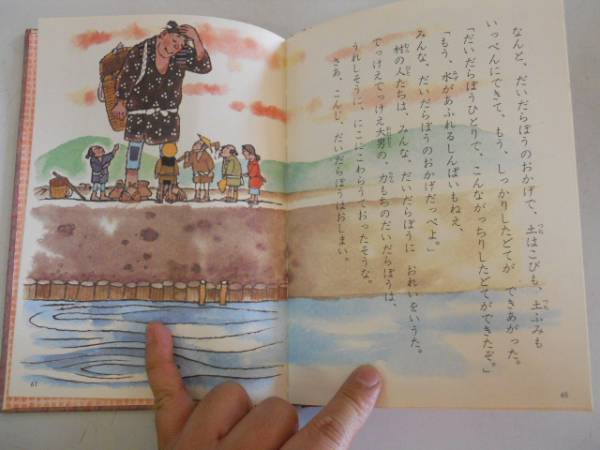 なんと、だいだらぼうのおかげで、土はこびも、土ふみも
いっぺんにできて、もう、しっかりしたどてが できあがった。
「だいだらぼうひとりで、こんながっちりしたどてができたぞ。」
「もう、水があふれるしんぱいもねえ、
みんな、だいだらぼうのおかげだっぺよ。」
村の人たちは、みんな、だいだらぼうに おれいをいうた。
でっけえでっけえ大男の、力もちのだいだらぼうは、
うれしそうに、にこにこわらうておったそうな。
さあ、こんじ、だいだらぼうはおしまい。
60
61